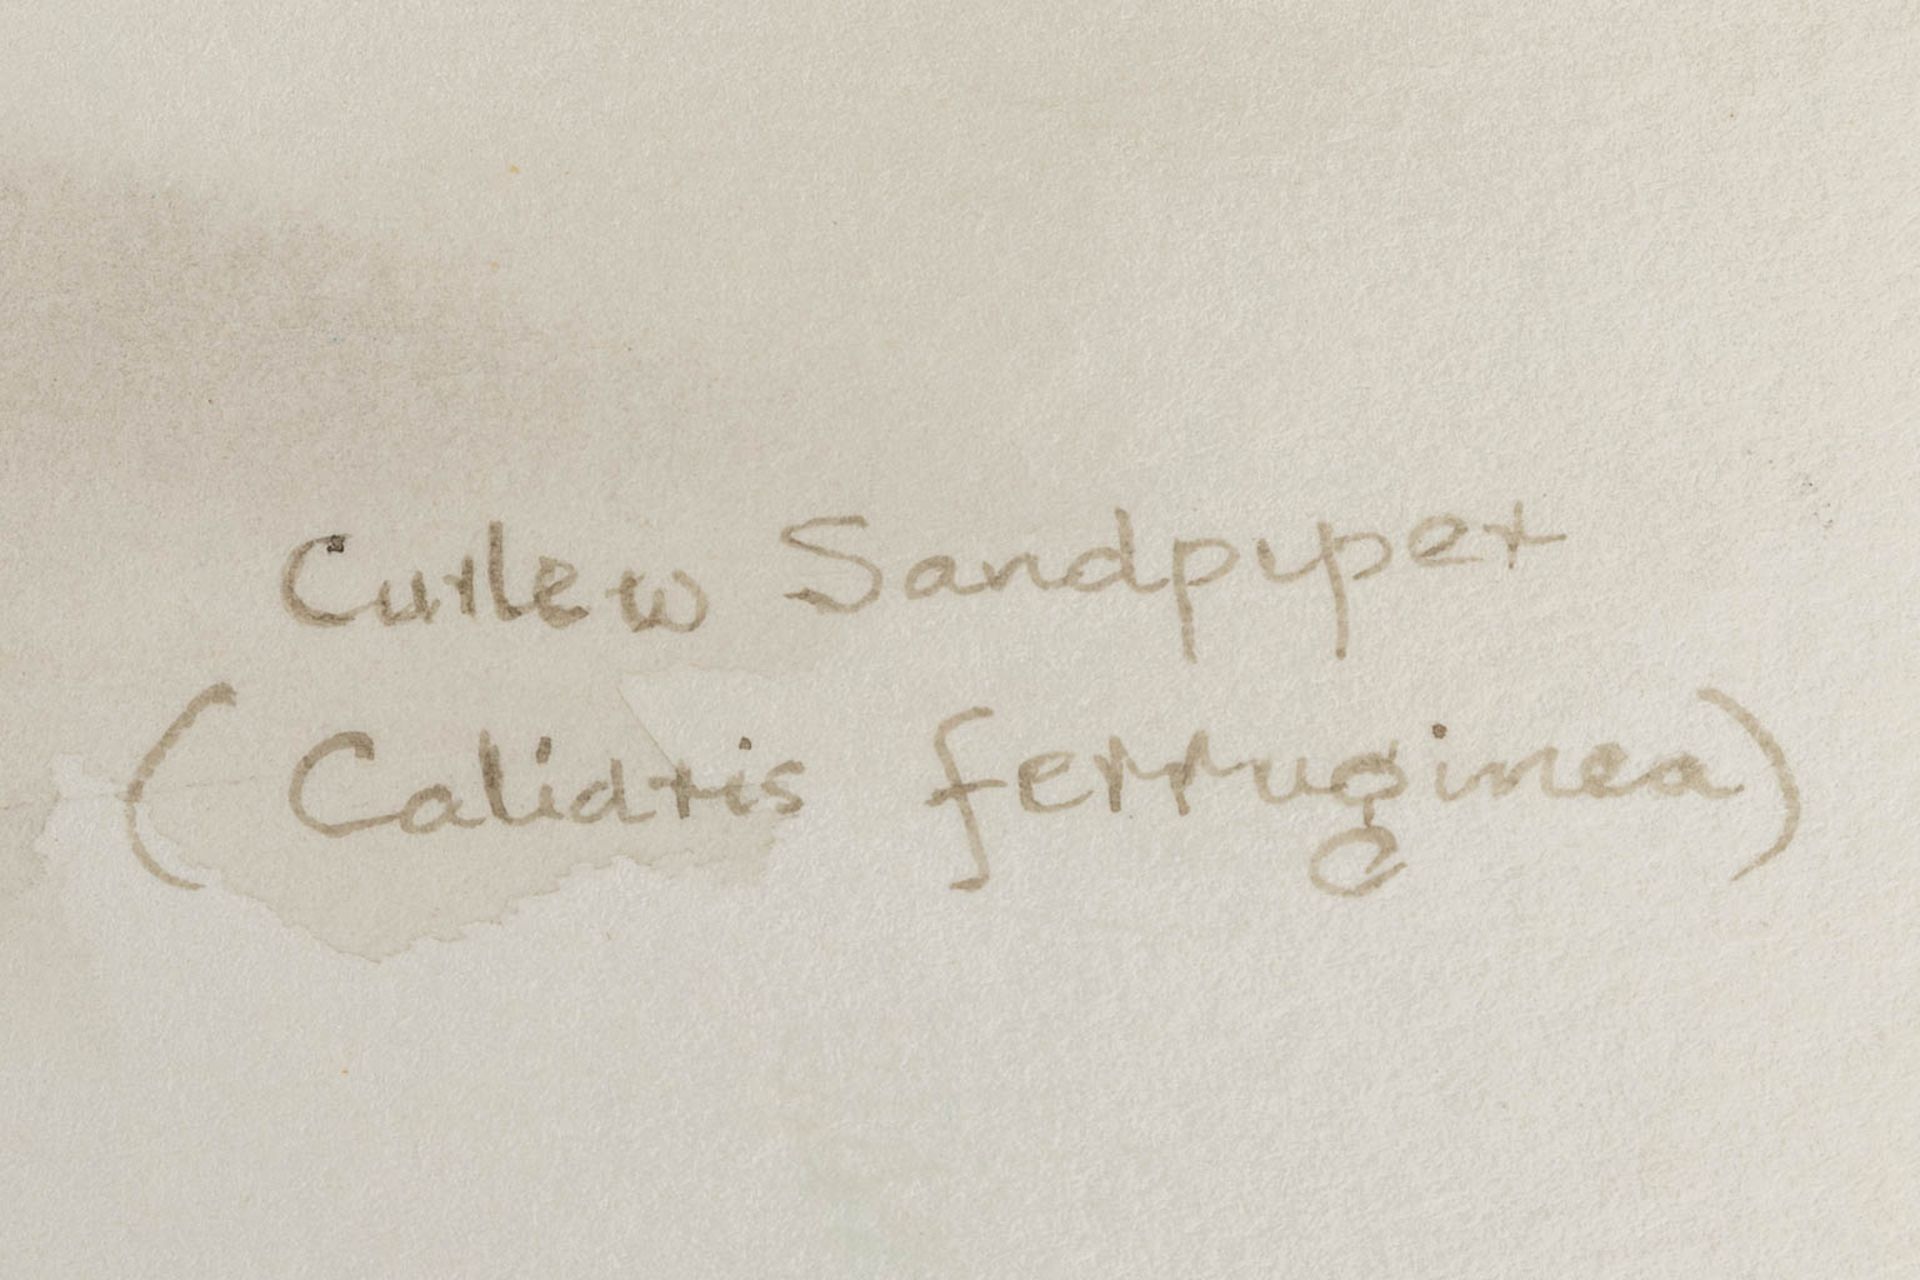 Curlew Sandpiper
(Calidris ferruginea)